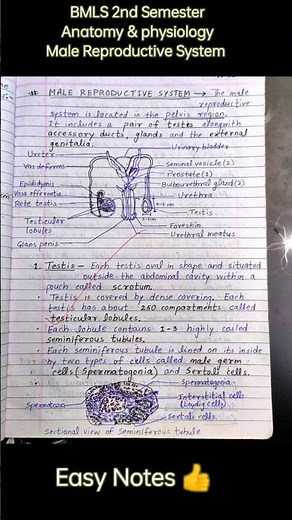 BMLS 2nd Semester
Anatomy & physiology
Male Reproductive System
# MALE REPRODUCTIVE SYSTEM → The male
reproductive
system is located in the pelvis region.
It includes a pair of testes alongwith
accessory ducts, glands and the external
genitalia.
Ureter
Urinary bladder
Vas deferens
Seminal vesicle (2)
Prostate (1)
Bulbourethral gland (2)
Epididymis
Vasa efferentia
Urethra
Rete testis
Testis
Testicular
lobules
Foreskin
Urethral meatus
Glans penis
1. Testis - Each testis oval in shape and situated
outside the abdominal cavity within a
pouch called scrotum.
• Testis is covered by dense covering. Each
testis has about 250 compartments called
testicular lobules.
• Each lobule contains 1-3 highly coiled
seminiferous tubules.
• Each seminiferous tubule is lined on its inside
by two types of cells called male germ
cells (Spermatogonia) and Sertoli cells.
Spermatogonia
Interstitial cells
(Leydig cells)
Sertoli cells
Sectional view of Seminiferous tubule
Easy Notes 👍